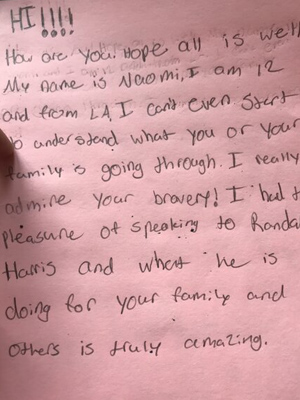 HI!!!!
How are you. Hope all is well
My name is Naomi, I am 12
and from LA, I can't even start
to understand what you or your
family is going through. I really
admire your bravery! I had t
pleasure of speaking to Randa
Harris and what he is
doing for your family and
others is truly amazing.